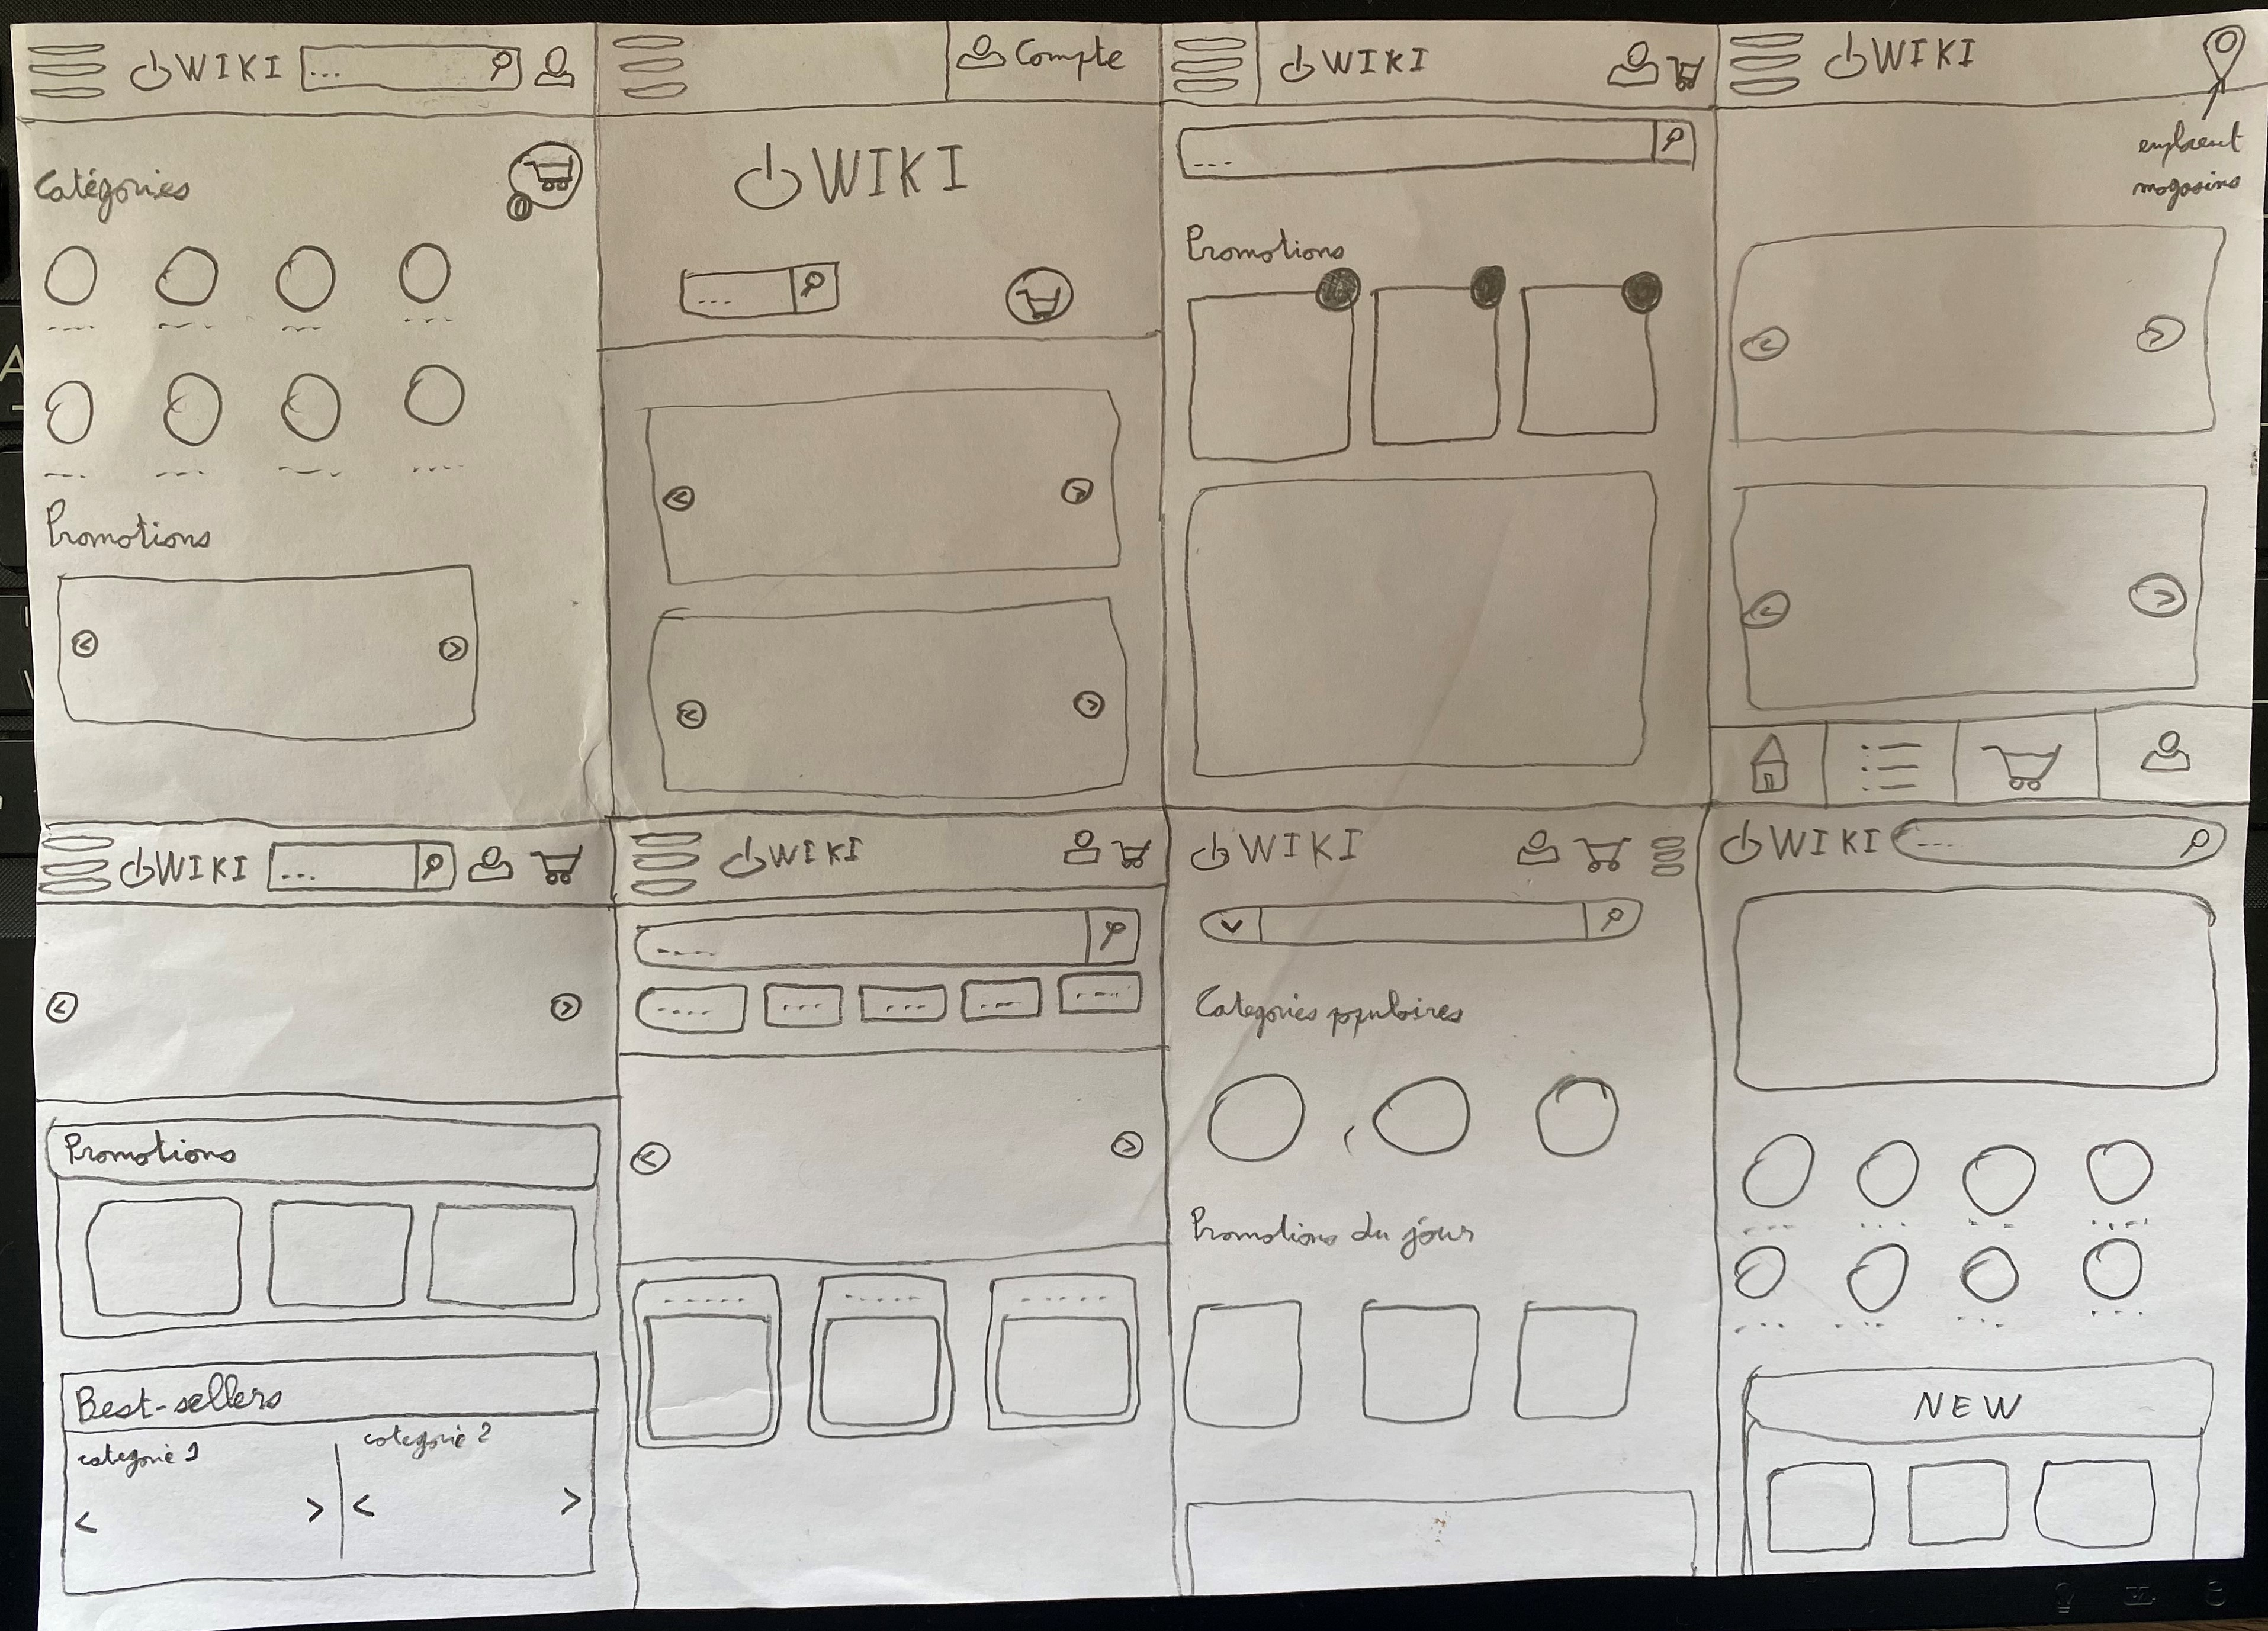 WIKI ...
Catégories
0
Promotions
Compte
WIKI
...
WIKI
...
Promotions
WIKI
magasins
WIKI ...
Promotions
Best-sellers
categorie 1
categorie 2
WIKI
WIKI
Categories populaires
Promotions du jour
WIKI ...
NEW